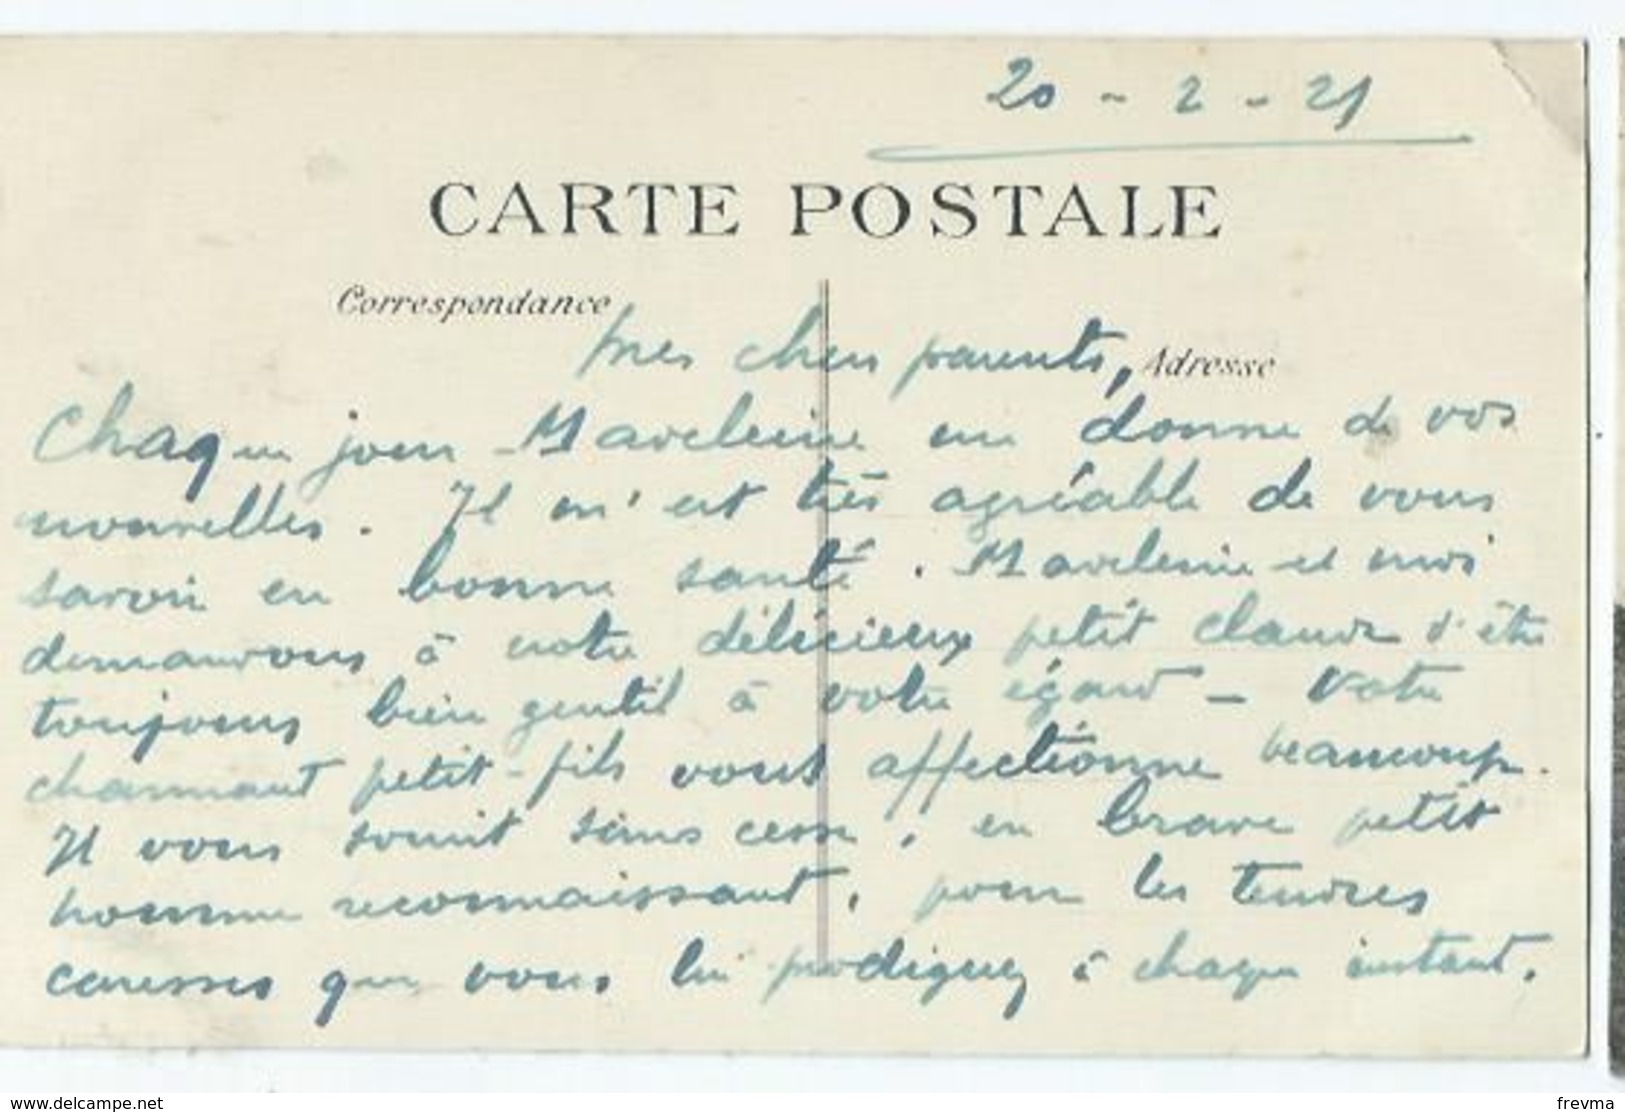 20 - 2 - 21
CARTE POSTALE
Correspondance
Mes chers parents,
Adresse
Chaque jour Madeleine me donne de vos
nouvelles. Il m'est très agréable de vous
savoir en bonne santé. Madeleine et moi
demandons à notre délicieux petit Claude d'être
toujours bien gentil à votre égard - Votre
charmant petit-fils vous affectionne beaucoup.
Il vous sourit sans cesse, en brave petit
homme reconnaissant, pour les tendres
caresses que vous lui prodiguez à chaque instant.
www.delcampe.net
frevma